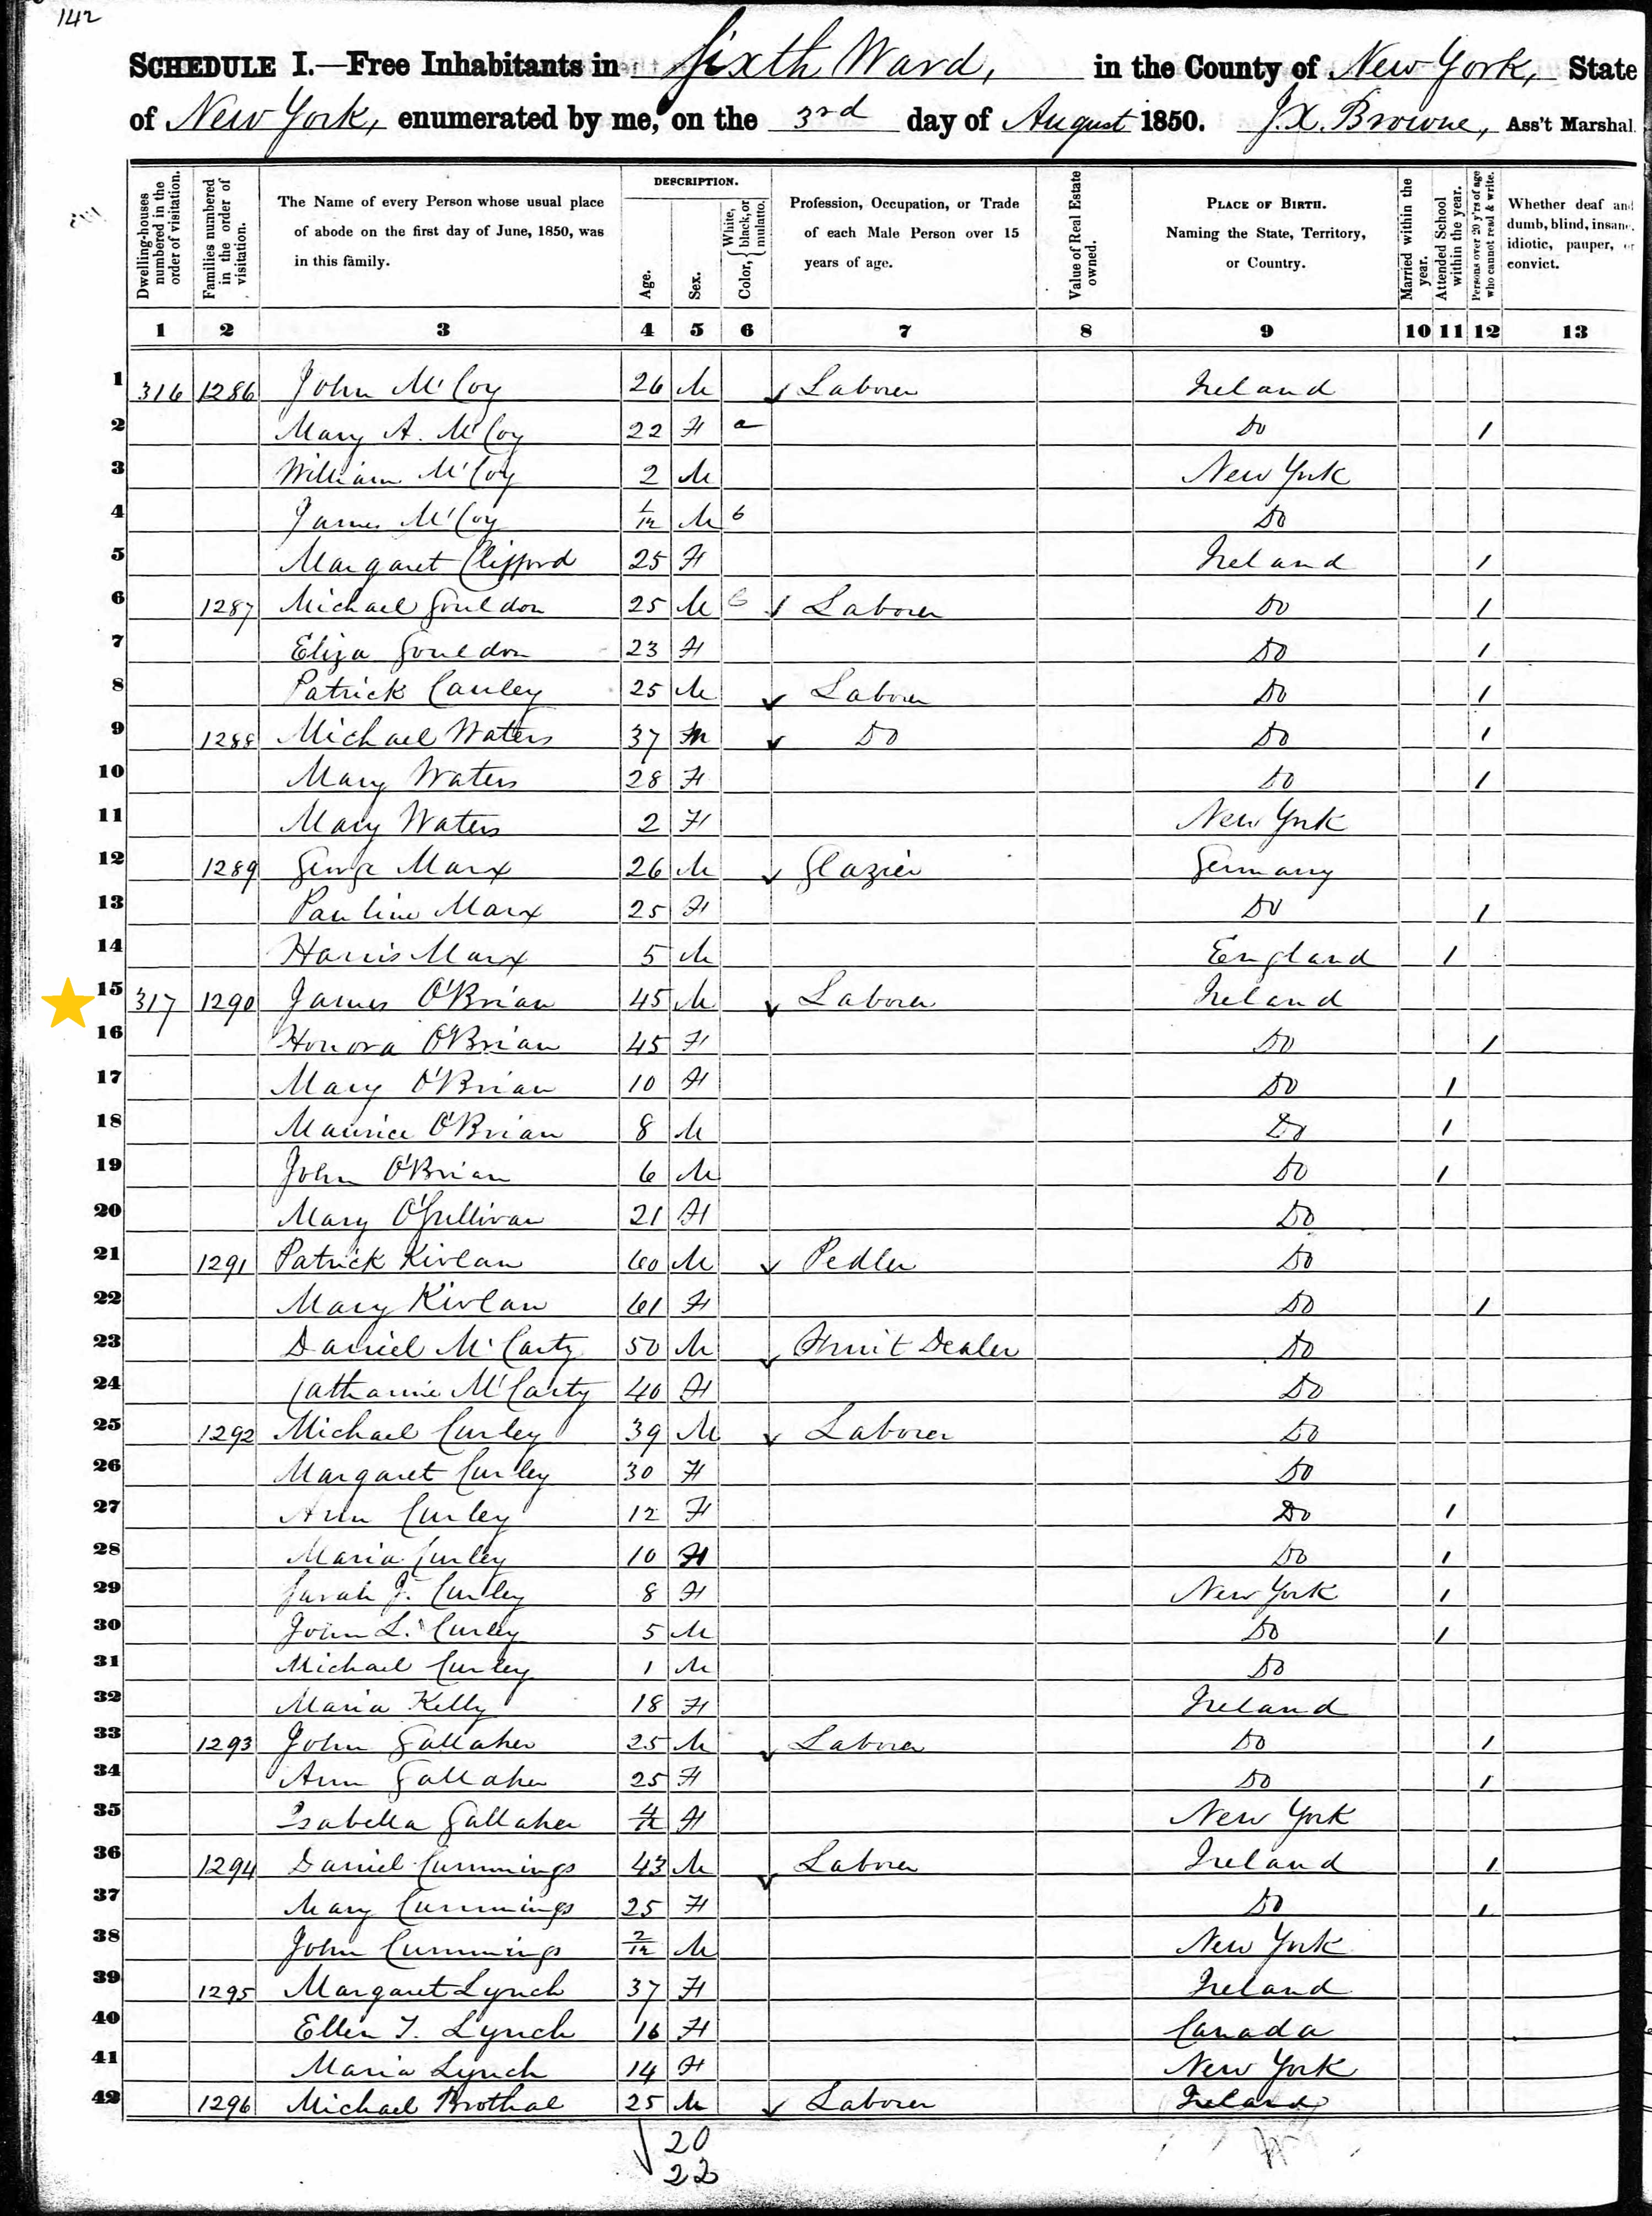 142
SCHEDULE I.—Free Inhabitants in Sixth Ward, in the County of New York, State
of New York, enumerated by me, on the 3rd day of August 1850. J.X. Browne, Ass't Marshal.
Dwelling-houses numbered in the order of visitation.
Families numbered in the order of visitation.
The Name of every Person whose usual place of abode on the first day of June, 1850, was in this family.
DESCRIPTION.
Age.
Sex.
Color, { White, black, or mulatto.
Profession, Occupation, or Trade of each Male Person over 15 years of age.
Value of Real Estate owned.
PLACE OF BIRTH. Naming the State, Territory, or Country.
Married within the year.
Attended School within the year.
Persons over 20 y'rs of age who cannot read & write.
Whether deaf and dumb, blind, insane, idiotic, pauper, or convict.
1 2 3 4 5 6 7 8 9 10 11 12 13
1 316 1286 John McCoy 26 M Laborer Ireland
2 Mary A. McCoy 22 F a Do 1
3 William McCoy 2 M New York
4 James McCoy 1/12 M 6 Do
5 Margaret Clifford 25 F Ireland 1
6 1287 Michael Gouldon 25 M 6 Laborer Do 1
7 Eliza Gouldon 23 F Do 1
8 Patrick Cauley 25 M Laborer Do 1
9 1288 Michael Waters 37 M Do Do 1
10 Mary Waters 28 F Do 1
11 Mary Waters 2 F New York
12 1289 George Marx 26 M Glazier Germany
13 Pauline Marx 25 F Do 1
14 Harris Marx 5 M England 1
15 317 1290 James O'Brian 45 M Laborer Ireland
16 Honora O'Brian 45 F Do 1
17 Mary O'Brian 10 F Do 1
18 Maurice O'Brian 8 M Do 1
19 John O'Brian 6 M Do 1
20 Mary O'Sullivan 21 F Do
21 1291 Patrick Kivlan 60 M Pedler Do
22 Mary Kivlan 61 F Do 1
23 Daniel McCarty 50 M Fruit Dealer Do
24 Catharine McCarty 40 F Do
25 1292 Michael Curley 39 M Laborer Do
26 Margaret Curley 30 F Do
27 Ann Curley 12 F Do 1
28 Maria Curley 10 F Do 1
29 Sarah J. Curley 8 F New York 1
30 John L. Curley 5 M Do 1
31 Michael Curley 1 M Do
32 Maria Kelly 18 F Ireland
33 1293 John Gallaher 25 M Laborer Do 1
34 Ann Gallaher 25 F Do 1
35 Isabella Gallaher 4/12 F New York
36 1294 Daniel Cummings 43 M Laborer Ireland 1
37 Mary Cummings 25 F Do 1
38 John Cummings 2/12 M New York
39 1295 Margaret Lynch 37 F Ireland
40 Ellen T. Lynch 16 F Canada
41 Maria Lynch 14 F New York
42 1296 Michael Brothal 25 M Laborer Ireland
20
22